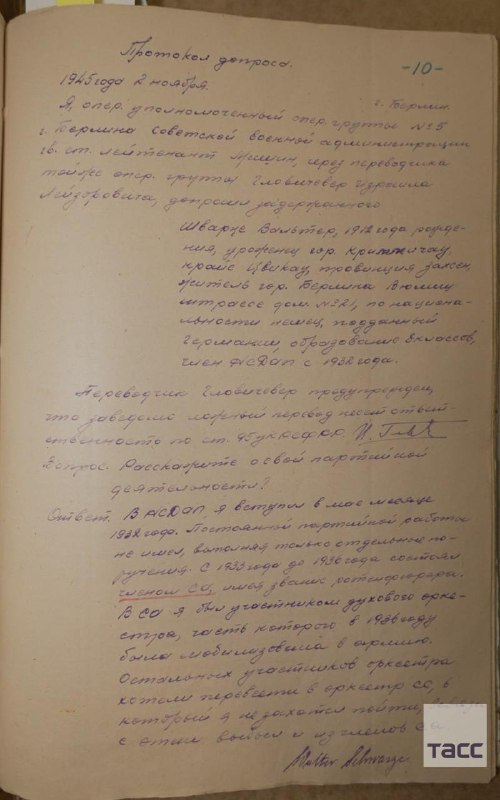 Протокол допроса.
-10-
1945 года 2 ноября. г. Берлин
Я, опер. уполномоченный опер. группы №5
г. Берлина Советской военной администрации
гв. ст. лейтенант через переводчика
той же опер. группы Гловичевер Израила
Лейзеровича, допросил задержанного
Шварце Вальтер, 1912 года рожде-
ния, уроженец гор. Криммичау,
крайс Цвикау, провинция Заксен,
житель гор. Берлина
штрассе дом. №21, по национа-
льности немец, подданный
Германии, образование 8 классов,
член НСДАП с 1932 года.
Переводчик Гловичевер предупрежден,
что за заведомо ложный перевод несет ответ-
ственность по ст. 95 УК РСФСР.
Вопрос. Расскажите о своей партийной
деятельности?
Ответ. В НСДАП, я вступил в мае месяце
1932 года. Постоянной партийной работы
не имел, выполнял только отдельные по-
ручения. С 1933 года до 1936 года состоял
членом СА, имея звание ротенфюрера.
В СА я был участником духового орке-
стра, часть которого в 1936 году
была мобилизована в армию.
Остальных участников оркестра
хотели перевести в оркестр СС, в
который я не захотел пойти,
с этим выбыл и из членов СА.
Walter Schwarze
ТАСС